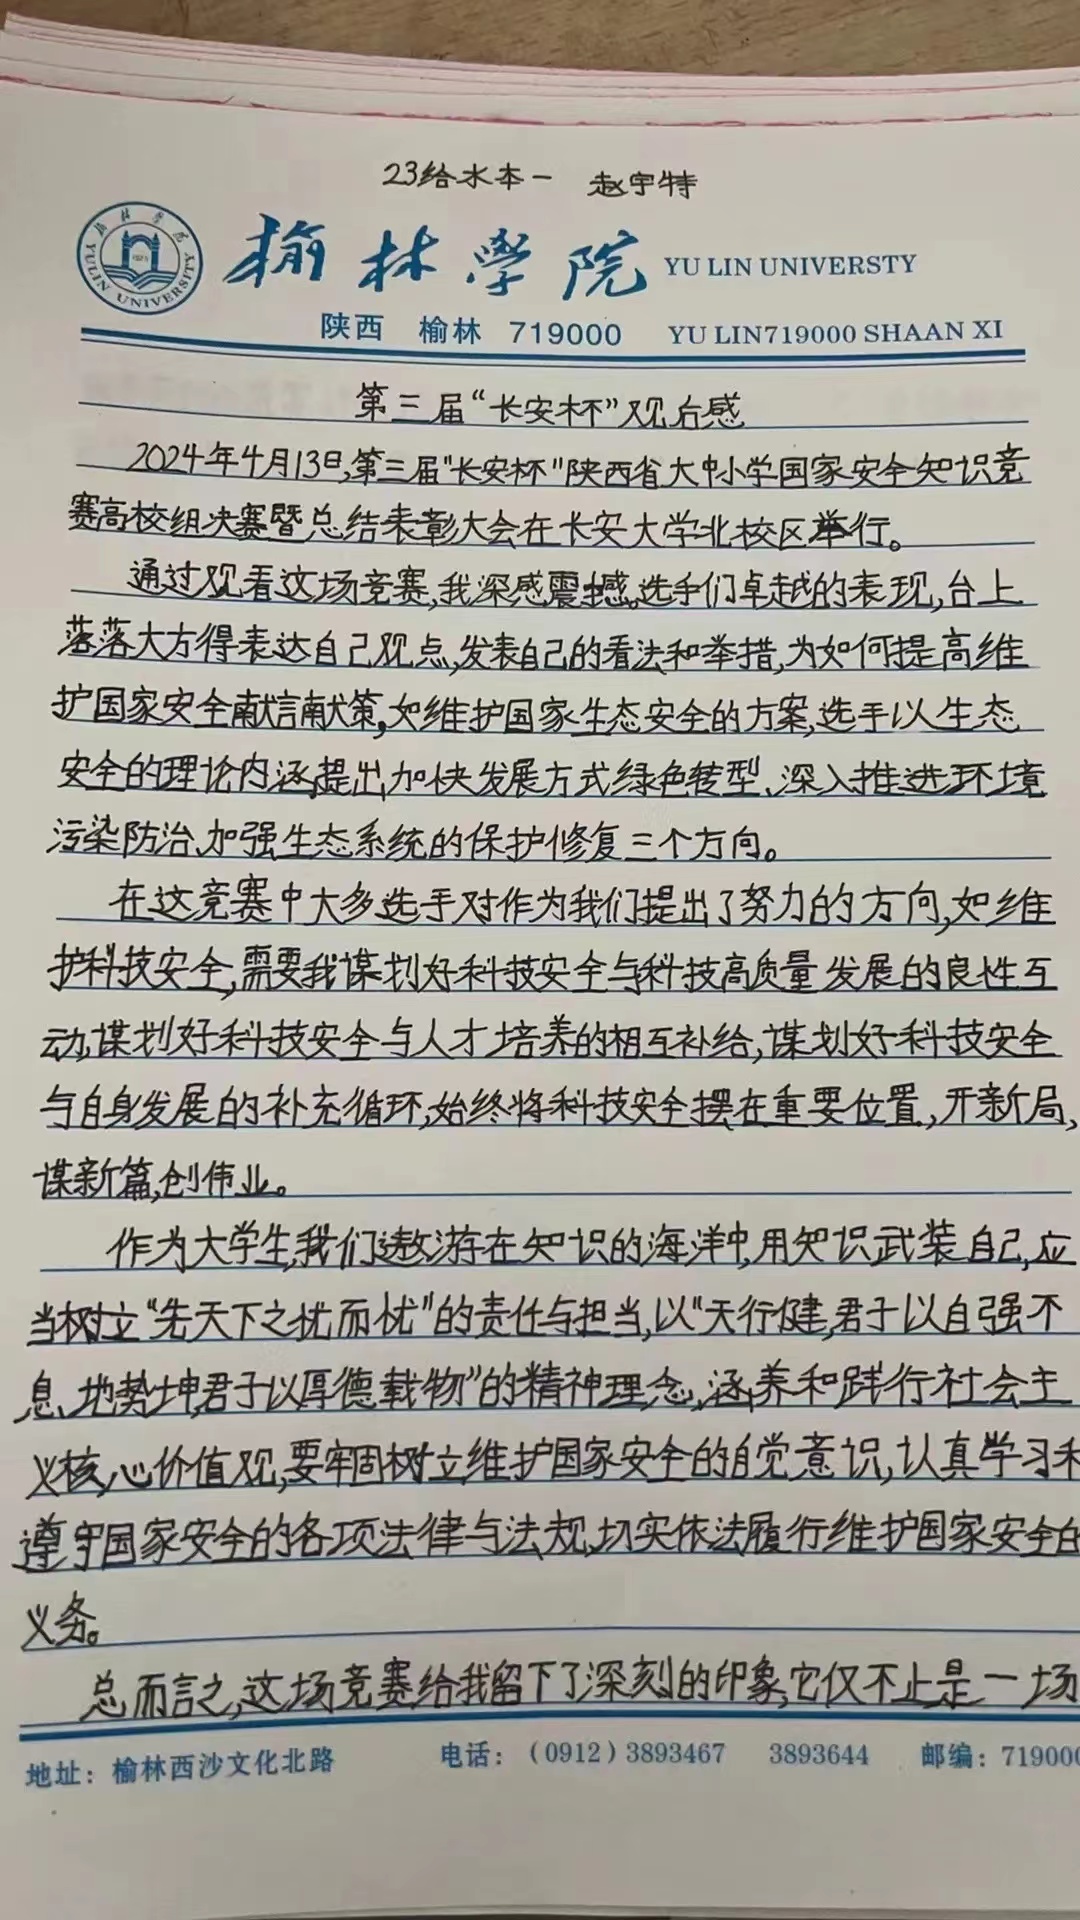 23给水本一 赵宇特
榆林学院 YU LIN UNIVERSTY
YULIN UNIVERSITY
陕西 榆林 719000 YU LIN719000 SHAAN XI
第三届“长安杯”观后感
2024年4月13日,第三届“长安杯”陕西省大中小学国家安全知识竞
赛高校组决赛暨总结表彰大会在长安大学北校区举行。
通过观看这场竞赛,我深感震撼。选手们卓越的表现,台上
落落大方得表达自己观点,发表自己的看法和举措,为如何提高维
护国家安全献言献策,如维护国家生态安全的方案,选手以生态
安全的理论内涵,提出加快发展方式绿色转型、深入推进环境
污染防治、加强生态系统的保护修复三个方向。
在这竞赛中大多选手对作为我们提出了努力的方向,如维
护科技安全,需要我谋划好科技安全与科技高质量发展的良性互
动,谋划好科技安全与人才培养的相互补给,谋划好科技安全
与自身发展的补充循环,始终将科技安全摆在重要位置,开新局,
谋新篇,创伟业。
作为大学生,我们遨游在知识的海洋中,用知识武装自己,应
当树立“先天下之忧而忧”的责任与担当,以“天行健,君子以自强不
息、地势坤,君子以厚德载物”的精神理念,涵养和践行社会主
义核心价值观,要牢固树立维护国家安全的自觉意识,认真学习和
遵守国家安全的各项法律与法规,切实依法履行维护国家安全的
义务。
总而言之,这场竞赛给我留下了深刻的印象,它仅不止是一场
地址：榆林西沙文化北路 电话：（0912）3893467 3893644 邮编：719000